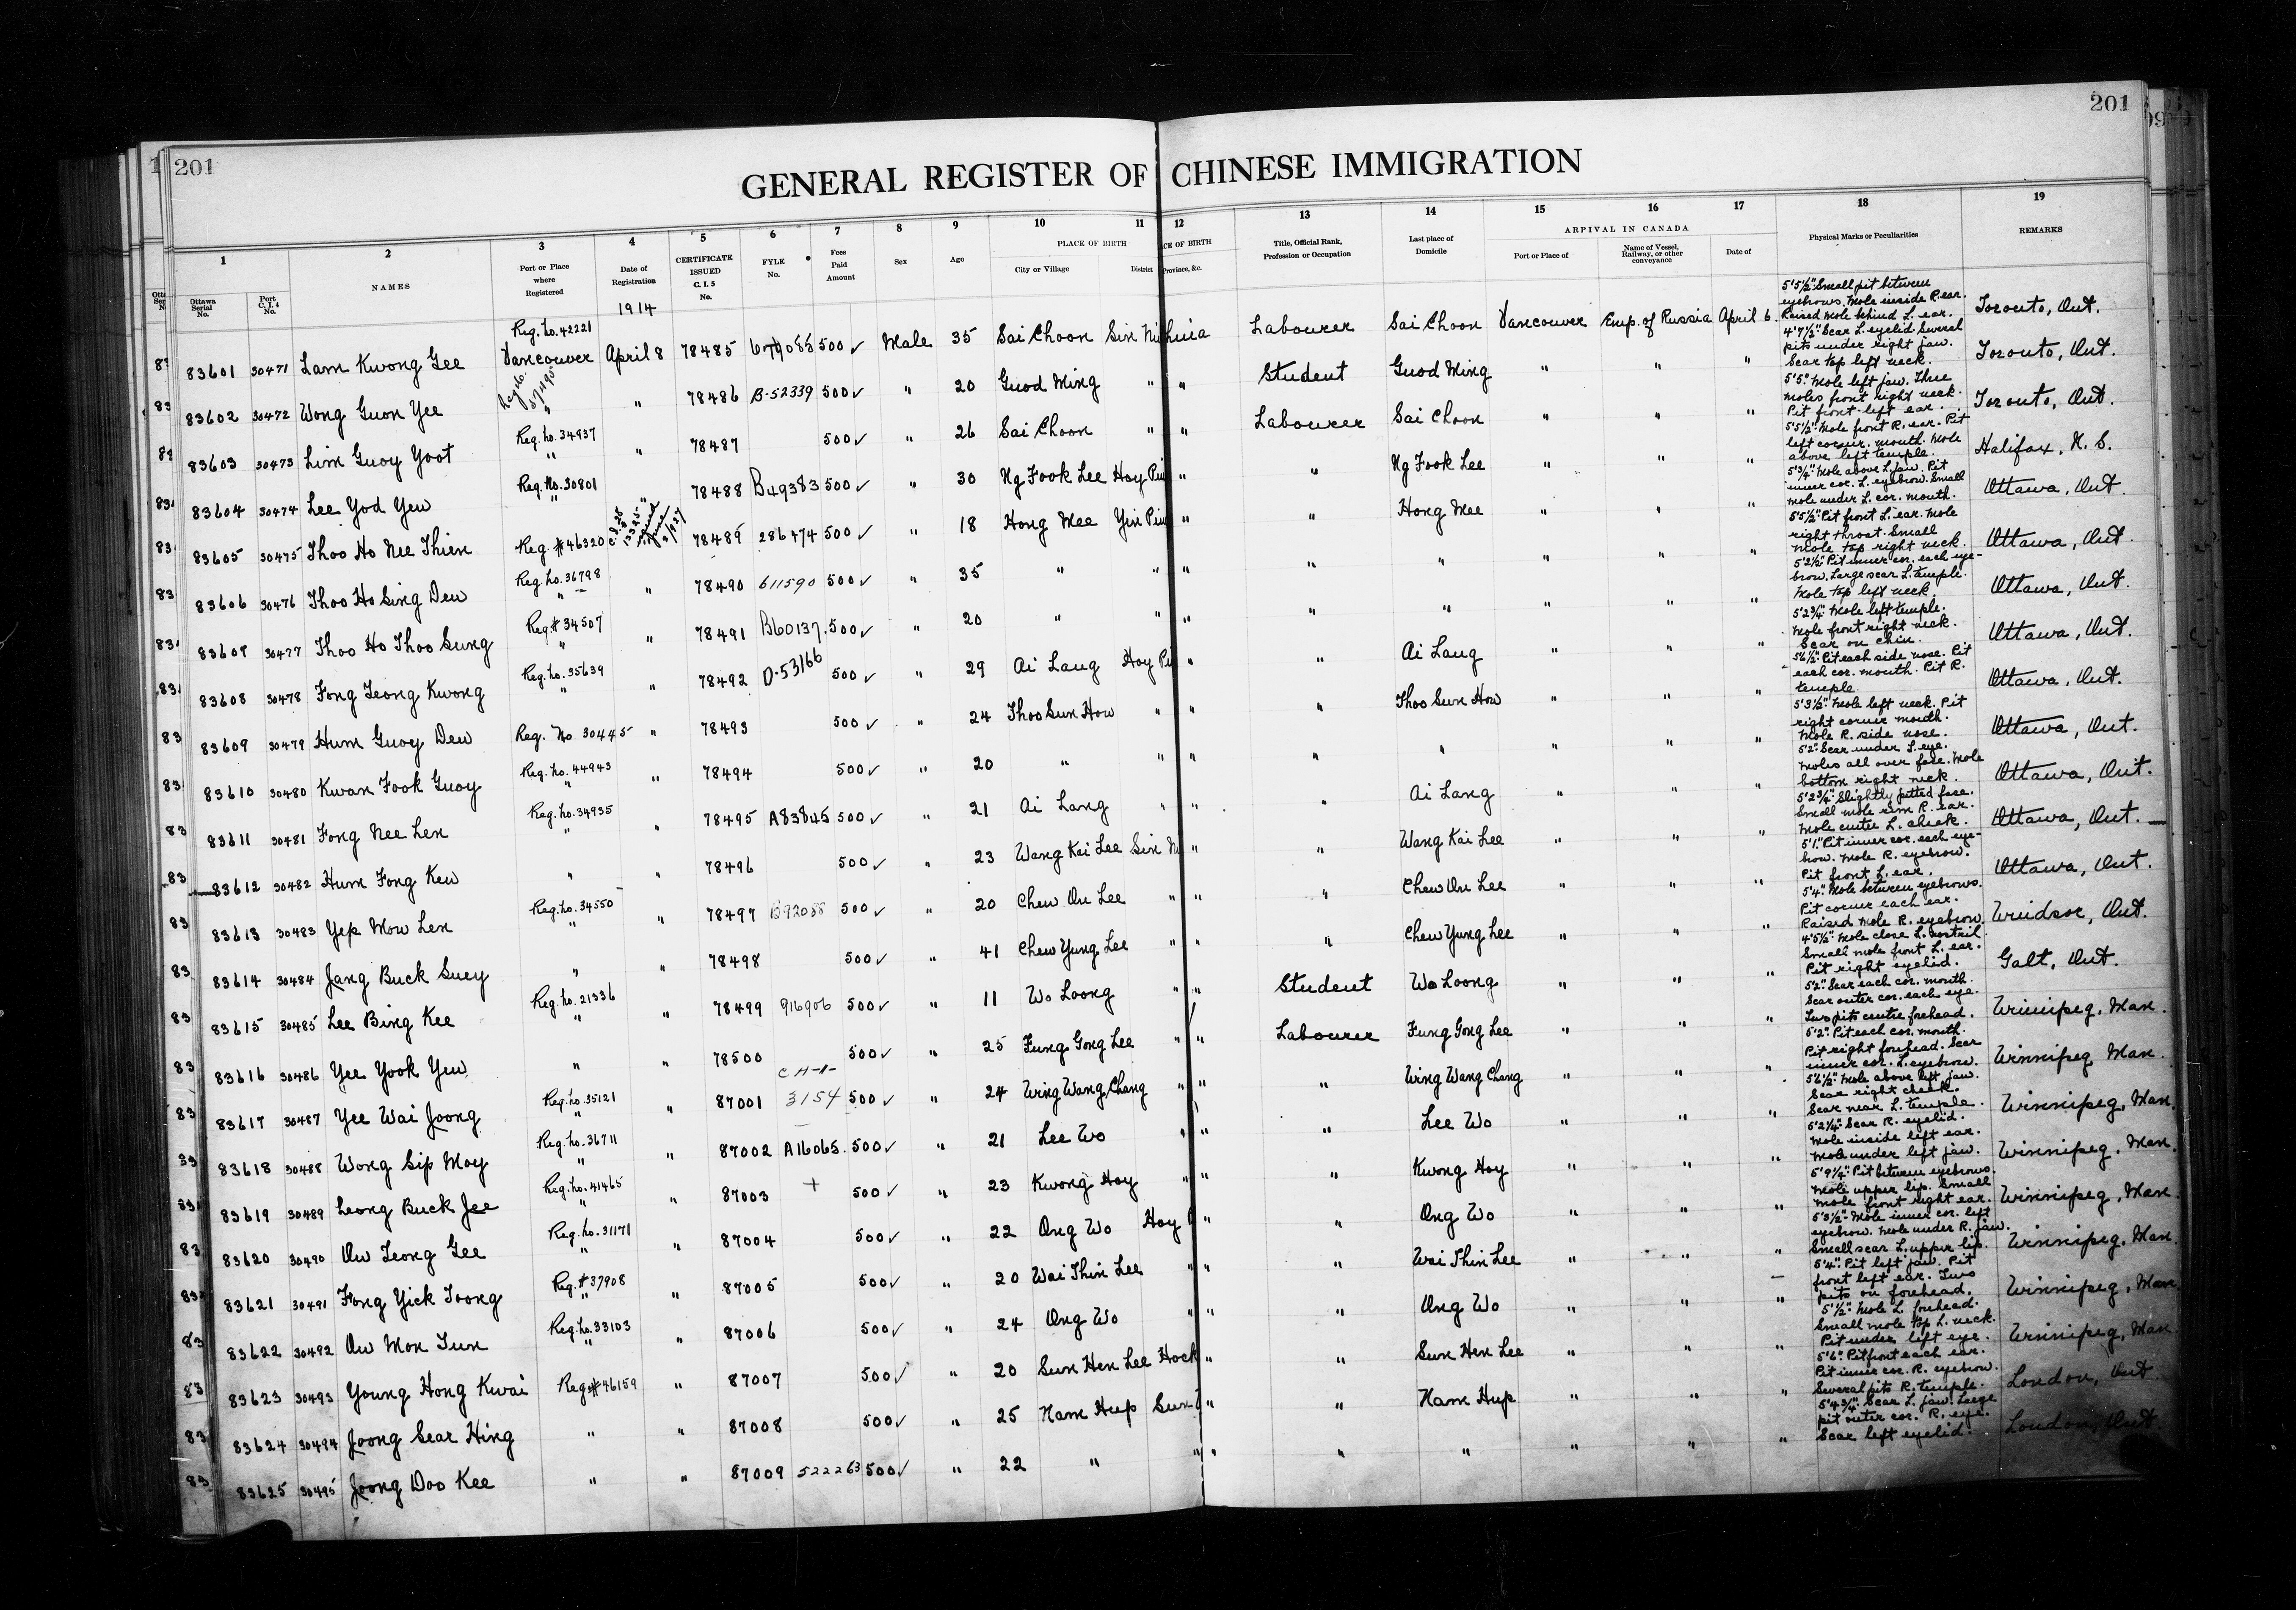 201
201
GENERAL REGISTER OF CHINESE IMMIGRATION
1 2 3 4 5 6 7 8 9 10 11 12 13 14 15 16 17 18 19
Ottawa Serial No.
Port C.I.4 No.
NAMES
Port or Place where Registered
Date of Registration
CERTIFICATE ISSUED C. I. 5 No.
FYLE No.
Fees Paid Amount
Sex
Age
PLACE OF BIRTH
City or Village
District
CE OF BIRTH
Province, &c.
Title, Official Rank, Profession or Occupation
Last place of Domicile
ARRIVAL IN CANADA
Port or Place of
Name of Vessel, Railway, or other conveyance
Date of
Physical Marks or Peculiarities
REMARKS
1914
83601 30471 Lam Kwong Gee Reg. no. 42221 Vancouver April 8 78485 500 ✓ Male 35 Sai Choon Sin Ni China Labourer Sai Choon Vancouver Emp. of Russia April 6. 5'5½" Small pit between eyebrows. Mole inside R. ear. Raised mole behind L. ear. Toronto, Ont.
83602 30472 Wong Guon Yee Reg. no. 37495 " " 78486 B-52339 500 ✓ " 20 Guod Ming " " Student Guod Ming " " " 4'7½" Scar L. eyelid. Several pits under right jaw. Scar top left neck. Toronto, Ont.
83603 30473 Lim Guoy Yoot Reg. no. 34937 " " 78487 500 ✓ " 26 Sai Choon " " Labourer Sai Choon " " " 5'5" Mole left jaw. Three moles front right neck. Pit front left ear. Toronto, Ont.
83604 30474 Lee Yod Yew Reg. No. 30801 " " 78488 B49383 500 ✓ " 30 Ng Fook Lee Hoy Pin " " Ng Fook Lee " " " 5'5½" Mole front R. ear. Pit left corner mouth. Mole above left temple. Halifax, N. S.
83605 30475 Thoo Ho Nee Thien Reg. # 46320 78489 286474 500 ✓ " 18 Hong Mee Yin Pin " " Hong Mee " " " 5'¾" Mole above L. jaw. Pit inner cor. L. eyebrow. Small mole under L. cor. mouth. Ottawa, Ont.
83606 30476 Thoo Ho Sing Dew Reg. no. 36798 " " 78490 611590 500 ✓ " 35 " " " " " " " " 5'5½" Pit front L. ear. Mole right throat. Small mole top right neck. Ottawa, Ont.
83607 30477 Thoo Ho Thoo Sung Reg. # 34507 " " 78491 B60137. 500 ✓ " 20 " " " " " " " " 5'2½" Pit inner cor. each eyebrow. Large scar L. temple. Mole top left neck. Ottawa, Ont.
83608 30478 Fong Jeong Kwong Reg. no. 35639 " " 78492 D-53166 500 ✓ " 29 Ai Lang Hoy Pi " " Ai Lang " " " 5'2¾" Mole left temple. Mole front right neck. Scar on chin. Ottawa, Ont.
83609 30479 Hum Guoy Dew Reg. No 30445 " 78493 500 ✓ " 24 Thoo Sun How " " " Thoo Sun How " " " 5'6½" Pit each side nose. Pit each cor. mouth. Pit R. temple. Ottawa, Ont.
83610 30480 Kwan Fook Guoy Reg. no. 44943 " " 78494 500 ✓ " 20 " " " " " " " " 5'3½" Mole left neck. Pit right corner mouth. Mole R. side nose. Ottawa, Ont.
83611 30481 Fong Nee Len Reg. no. 34935 " " 78495 A83845 500 ✓ " 21 Ai Lang " " " Ai Lang " " " 5'2" Scar under L. eye. Moles all over face. Mole bottom right neck. Ottawa, Ont.
83612 30482 Hum Fong Kew " " 78496 500 ✓ " 23 Wang Kai Lee Sin Ni " " Wang Kai Lee " " " 5'2¾" Slightly pitted face. Small mole rim R. ear. Mole centre L. cheek. Ottawa, Ont.
83613 30483 Yep Mow Len Reg. no. 34550 " " 78497 B92088 500 ✓ " 20 Chew On Lee " " " Chew On Lee " " " 5'1" Pit inner cor. each eyebrow. Mole R. eyebrow. Pit front L. ear. Ottawa, Ont.
83614 30484 Jang Buck Suey " " 78498 500 ✓ " 41 Chew Yung Lee " " " Chew Yung Lee " " " 5'4" Mole between eyebrows. Pit corner each ear. Raised mole R. eyebrow. Windsor, Ont.
83615 30485 Lee Bing Kee Reg. no. 21336 " " 78499 916906 500 ✓ " 11 Wo Loong " " Student Wo Loong " " " 4'5½" Mole close L. nostril. Small mole front L. ear. Pit right eyelid. Galt, Ont.
83616 30486 Yee Yook Yew " " 78500 500 ✓ " 25 Fung Gong Lee " " Labourer Fung Gong Lee " " " 5'2" Scar each cor. mouth. Scar outer cor. each eye. Two pits centre forehead. Winnipeg, Man.
83617 30487 Yee Wai Joong Reg. no. 35121 " 87001 CH-1- 3154 500 ✓ " 24 Wing Wang Chang " " " Wing Wang Chang " " " 5'2" Pit each cor. mouth. Pit right forehead. Scar inner cor. L. eyebrow. Winnipeg Man.
83618 30488 Wong Sip Moy Reg. no. 36711 " " 87002 A16065. 500 ✓ " 21 Lee Wo " " " Lee Wo " " " 5'6½" Mole above left jaw. Scar right cheek. Scar near L. temple. Winnipeg, Man.
83619 30489 Leong Buck Jee Reg. no. 41465 " " 87003 + 500 ✓ " 23 Kwong Hoy " " " Kwong Hoy " " " 5'2¼" Scar R. eyelid. Mole inside left ear. Mole under left jaw. Winnipeg, Man.
83620 30490 Ow Leong Gee Reg. no. 31171 " " 87004 500 ✓ " 22 Ong Wo Hoy " " Ong Wo " " " 5'9¼" Pit between eyebrows. Mole upper lip. Small mole front right ear. Winnipeg, Man.
83621 30491 Fong Yick Toong Reg. # 37908 " " 87005 500 ✓ " 20 Wai Thin Lee " " " Wai Thin Lee " " " 5'3½" Mole inner cor. left eyebrow. Mole under R. jaw. Small scar L. upper lip. Winnipeg, Man.
83622 30492 Ow Mon Tun Reg. no. 33103 " " 87006 500 ✓ " 24 Ong Wo " " " Ong Wo " " " 5'4" Pit left jaw. Pit front left ear. Two pits on forehead. Winnipeg, Man.
83623 30493 Young Hong Kwai Reg. # 46159 " 87007 500 ✓ " 20 Sun Hen Lee Hock " " Sun Hen Lee " " " 5'½" Mole L. forehead. Small mole top L. neck. Pit under left eye. Winnipeg, Man.
83624 30494 Joong Sear Hing " " 87008 500 ✓ " 25 Nam Hup Sun " " Nam Hup " " " 5'6" Pit front each ear. Pit inner cor. R. eyebrow. Several pits R. temple. London, Ont.
83625 30495 Joong Doo Kee " " 87009 522263 500 ✓ " 22 " " " " " " " " 5'4¾" Scar L. jaw. Large pit outer cor. R. eye. Scar left eyelid. London, Ont.